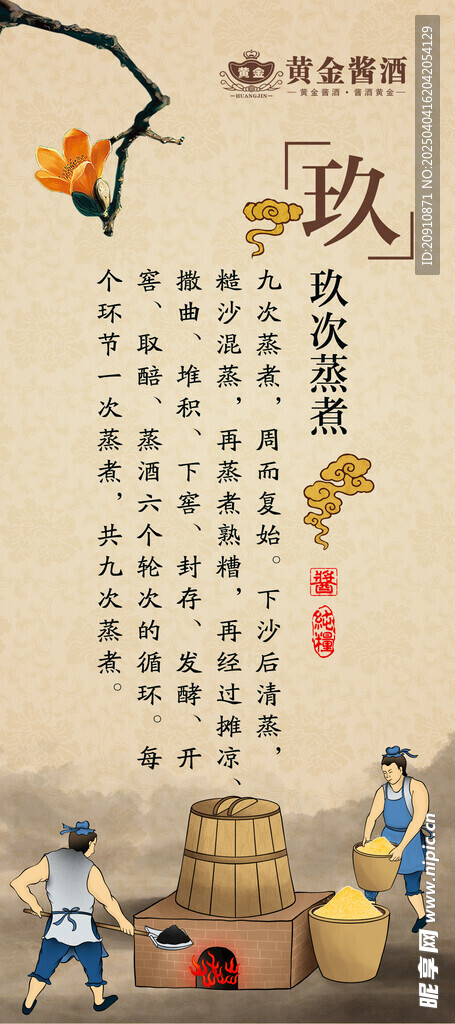 黄金
HUANGJIN
黄金酱酒
黄金酱酒·酱酒黄金
「玖」
玖次蒸煮
九次蒸煮，周而复始。下沙后清蒸，
糙沙混蒸，再蒸煮熟糟，再经过摊凉、
撒曲、堆积、下窖、封存、发酵、开
窖、取醅、蒸酒六个轮次的循环。每
个环节一次蒸煮，共九次蒸煮。
醬
純糧
ID:20910871 NO:20250404162042054129
昵享网 www.nipic.cn